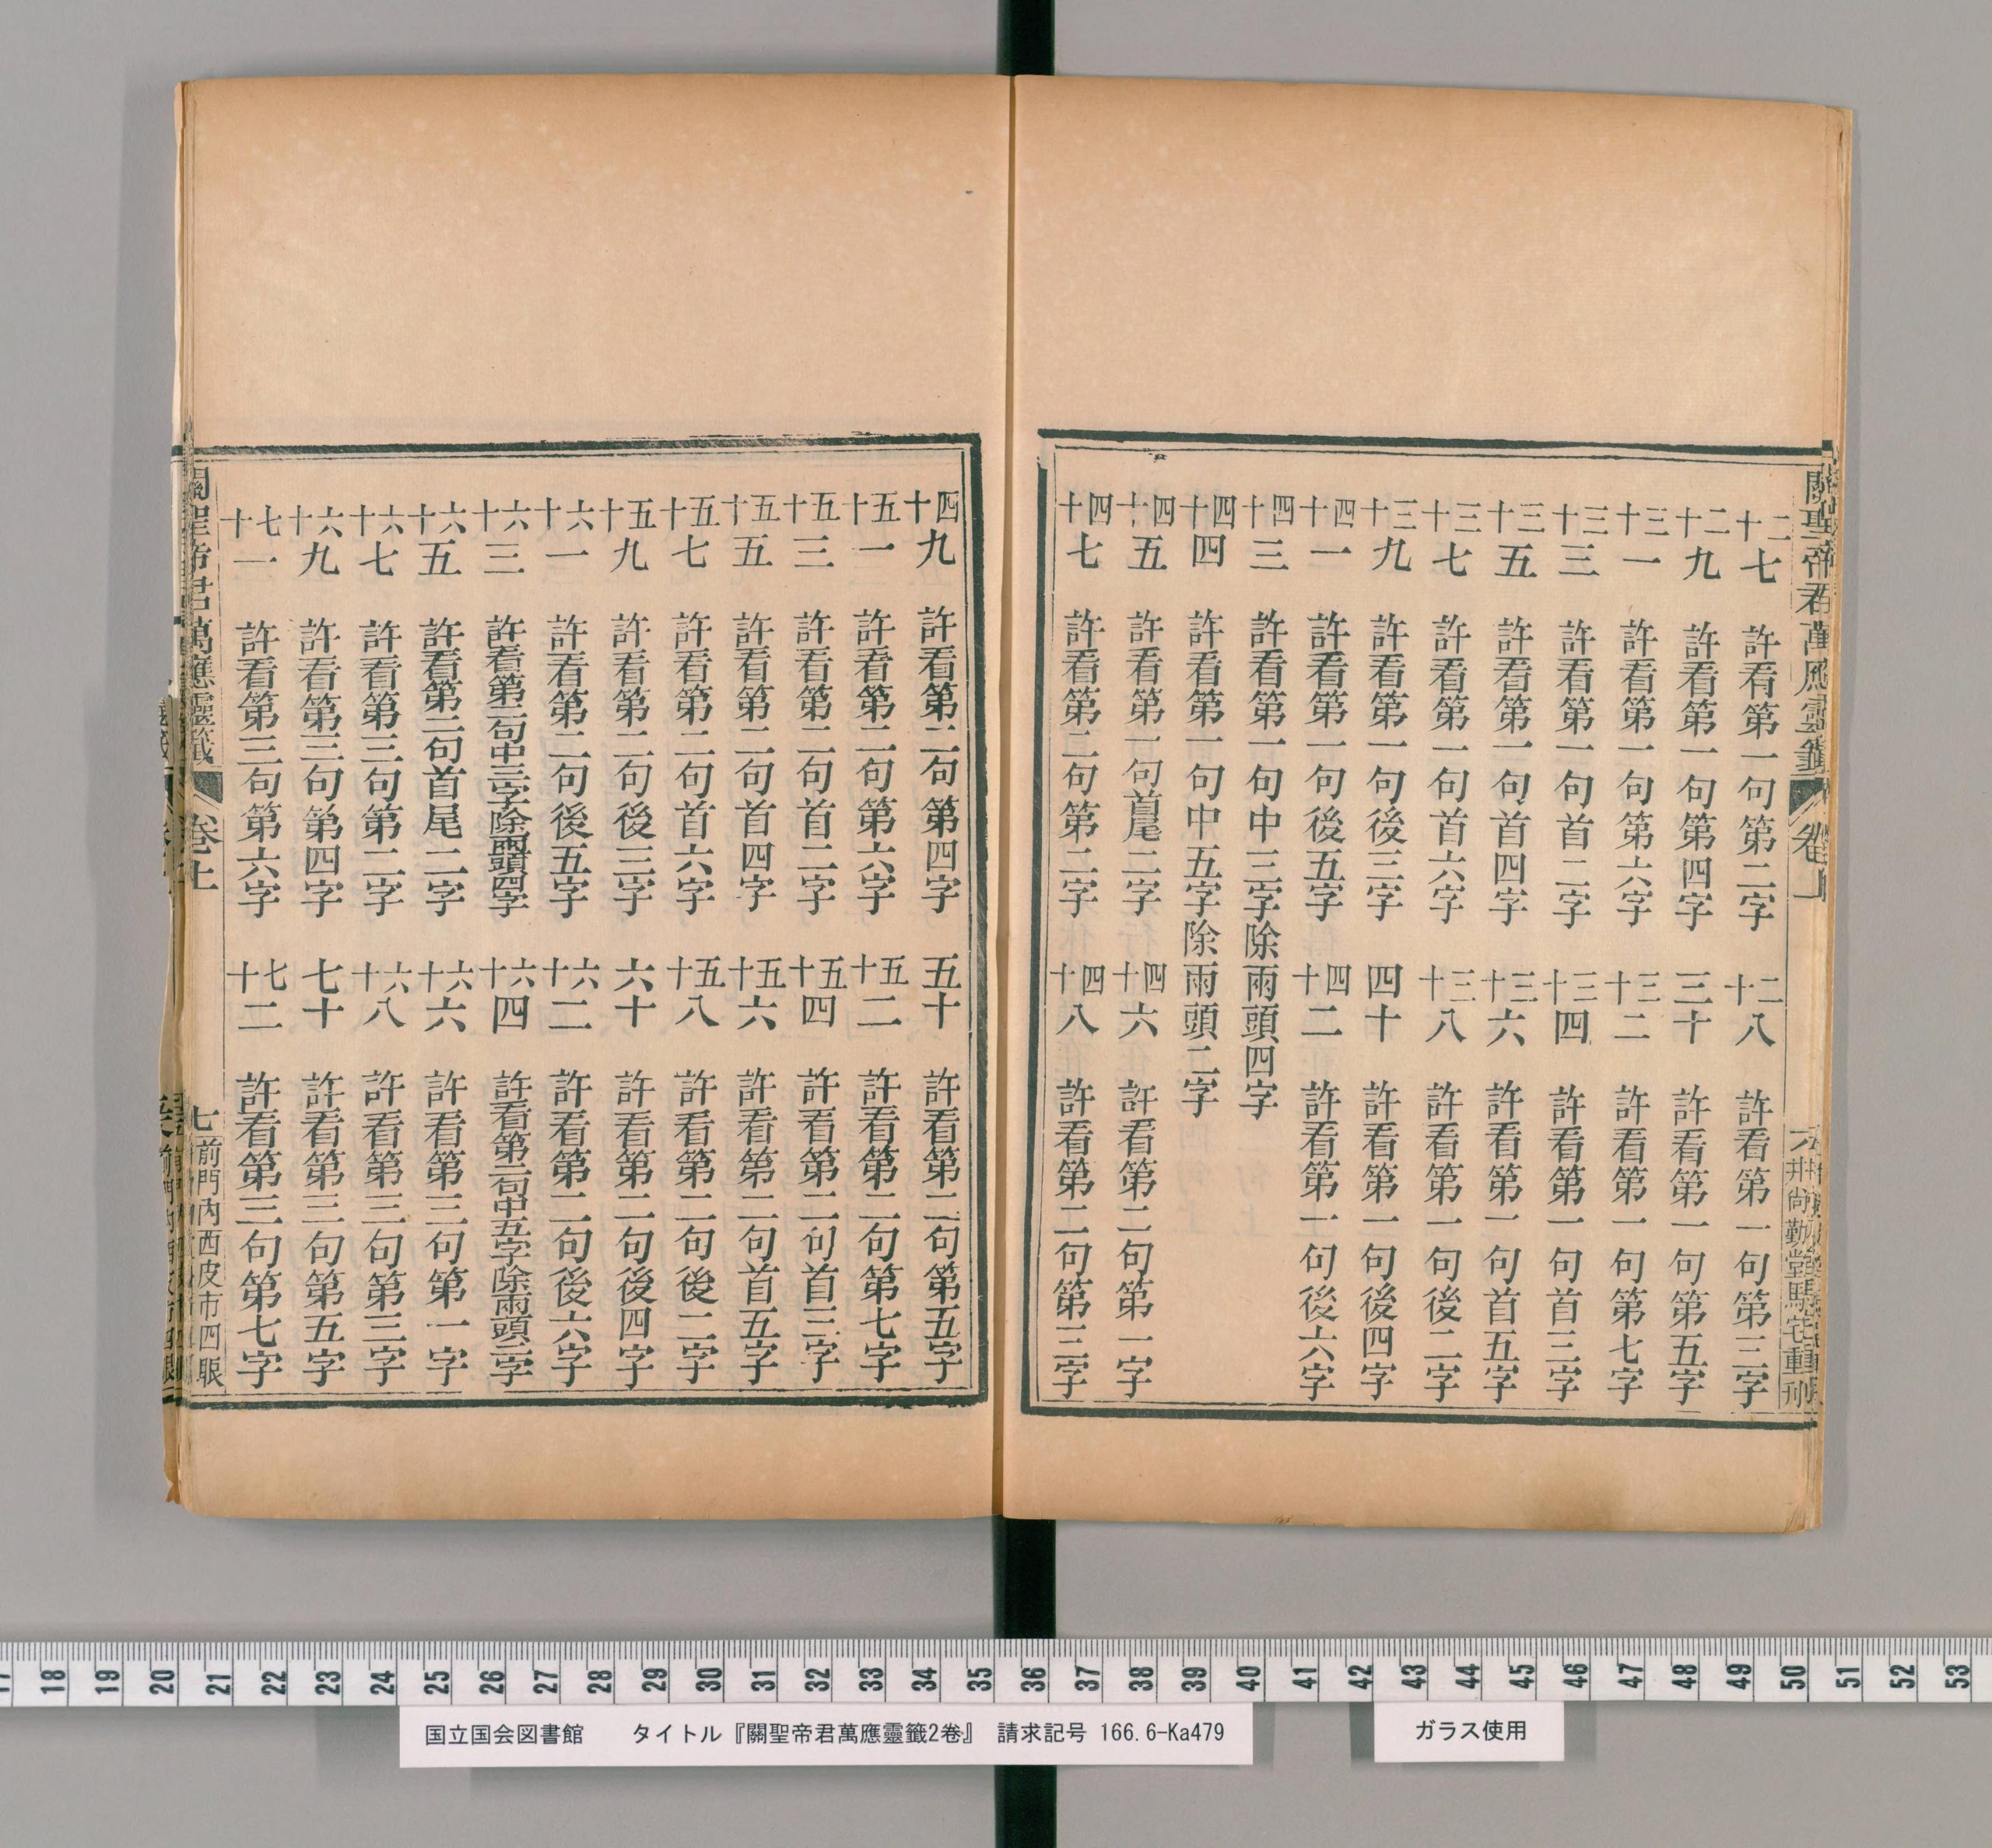 關聖帝君萬應靈籤 卷上 六 尙勤堂駱宅重刊
二十七 許看第一句第二字 二十八 許看第一句第三字
二十九 許看第一句第四字 三十 許看第一句第五字
三十一 許看第一句第六字 三十二 許看第一句第七字
三十三 許看第一句首二字 三十四 許看第一句首三字
三十五 許看第一句首四字 三十六 許看第一句首五字
三十七 許看第一句首六字 三十八 許看第一句後二字
三十九 許看第一句後三字 四十 許看第一句後四字
四十一 許看第一句後五字 四十二 許看第一句後六字
四十三 許看第一句中三字除兩頭四字
四十四 許看第一句中五字除兩頭二字
四十五 許看第一句首尾二字 四十六 許看第二句第一字
四十七 許看第二句第二字 四十八 許看第二句第三字
四十九 許看第二句第四字 五十 許看第二句第五字
五十一 許看第二句第六字 五十二 許看第二句第七字
五十三 許看第二句首二字 五十四 許看第二句首三字
五十五 許看第二句首四字 五十六 許看第二句首五字
五十七 許看第二句首六字 五十八 許看第二句後二字
五十九 許看第二句後三字 六十 許看第二句後四字
六十一 許看第二句後五字 六十二 許看第二句後六字
六十三 許看第二句中三字除兩頭四字 六十四 許看第二句中五字除兩頭二字
六十五 許看第二句首尾二字 六十六 許看第三句第一字
六十七 許看第三句第二字 六十八 許看第三句第三字
六十九 許看第三句第四字 七十 許看第三句第五字
七十一 許看第三句第六字 七十二 許看第三句第七字
關聖帝君萬應靈籤 卷上 七 前門內西皮市四眼
17 18 19 20 21 22 23 24 25 26 27 28 29 30 31 32 33 34 35 36 37 38 39 40 41 42 43 44 45 46 47 48 49 50 51 52 53
国立国会図書館 タイトル『關聖帝君萬應靈籤2卷』 請求記号 166.6-Ka479
ガラス使用